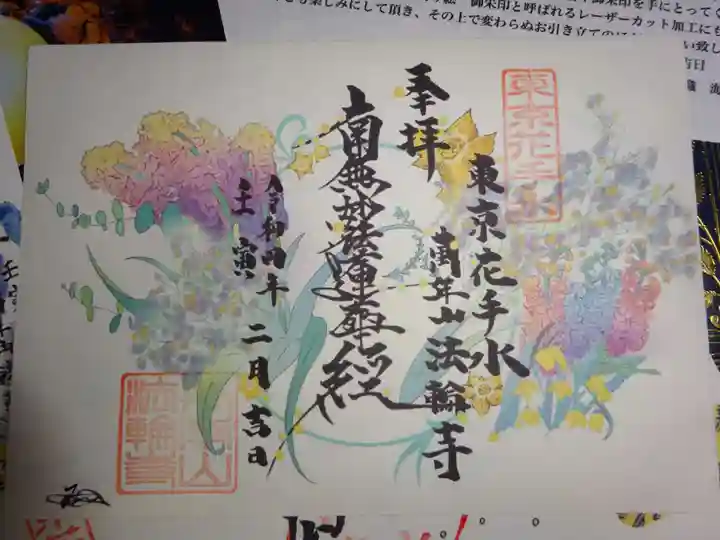 御朱印を手にとってく
御朱印と呼ばれるレーザーカット加工にも
楽しみにして頂き、その上で変わらぬお引き立てのほ
い致し
吉日
東京花手水
奉拝
東京花手水
萬年山法輪寺
南無妙法蓮華経
令和四年
壬寅
二月吉日